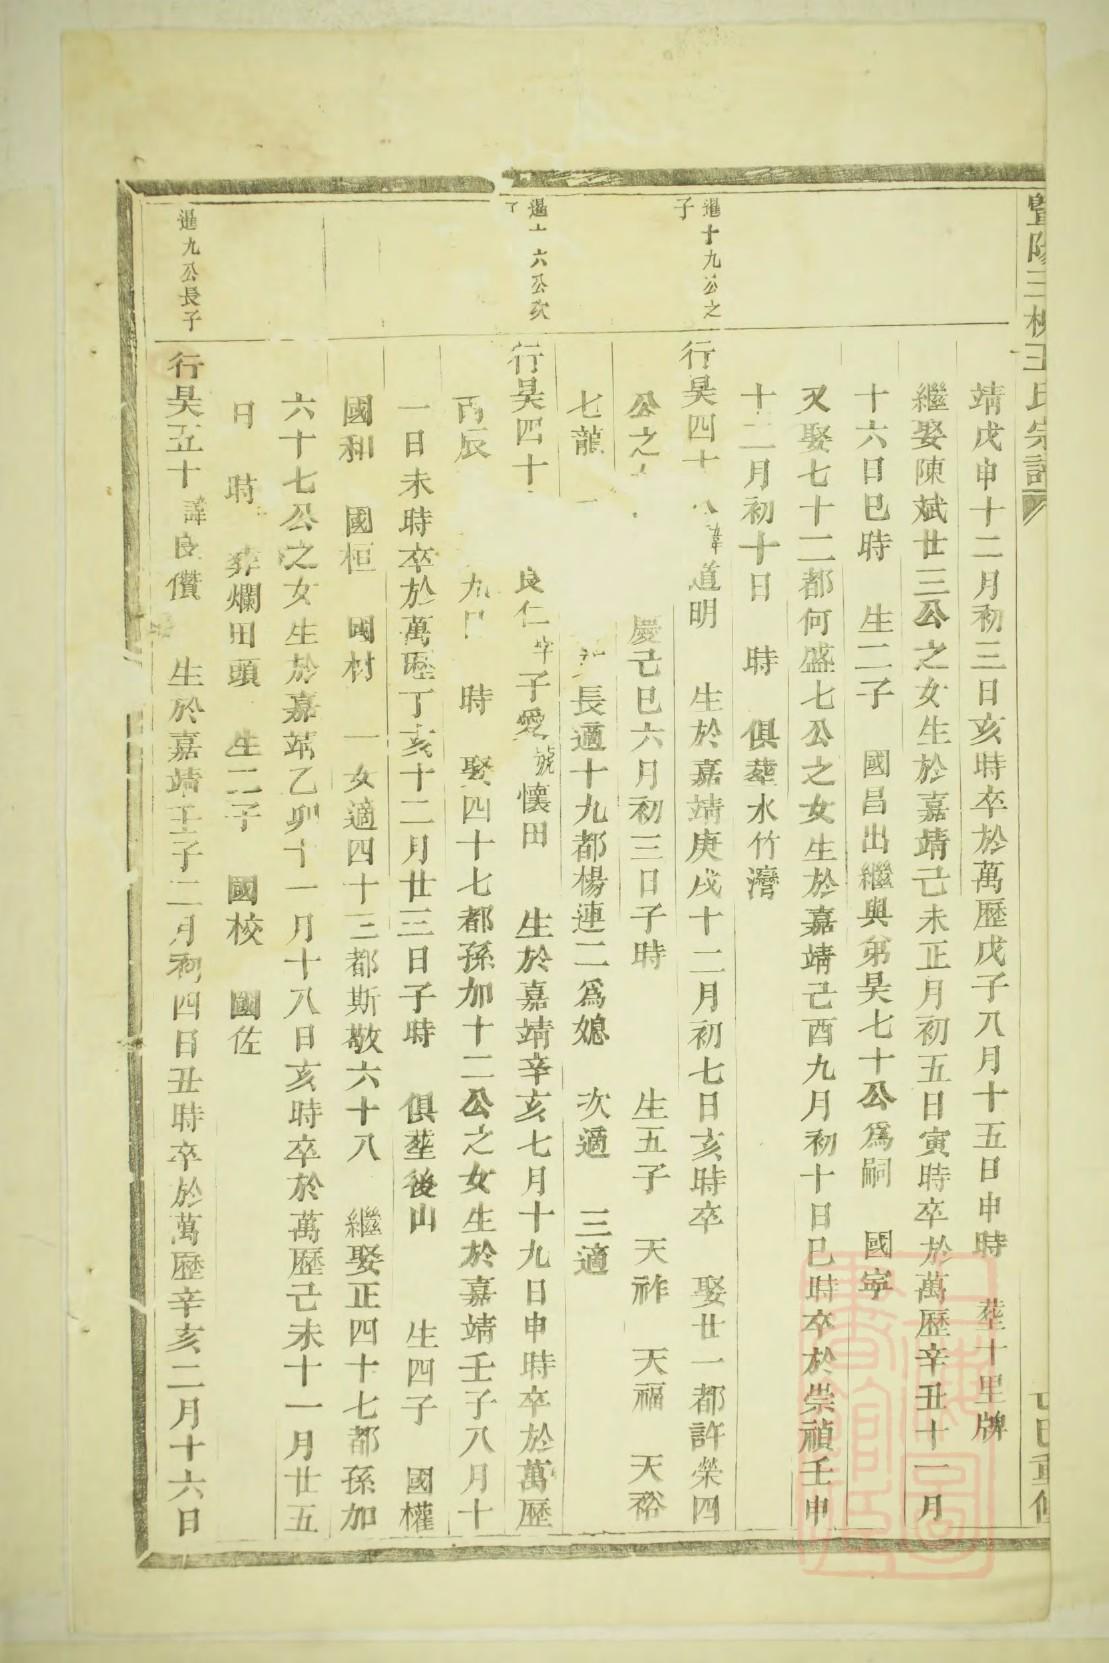 暨陽三槐王氏宗譜
己巳重修
靖戊申十二月初三日亥時卒於萬歷戊子八月十五日申時 葬十里牌
繼娶陳斌廿三公之女生於嘉靖己未正月初五日寅時卒於萬歷辛丑十一月
十六日巳時 生二子 國昌出繼與弟昊七十公爲嗣 國寧
又娶七十二都何盛七公之女生於嘉靖己酉九月初十日巳時卒於崇禎壬申
十二月初十日 時 俱葬水竹灣
暹十九公之
子
行昊四十八諱道明 生於嘉靖庚戌十二月初七日亥時卒 娶廿一都許榮四
公之 慶己巳六月初三日子時 生五子 天祚 天福 天裕
七龍 長適十九都楊連二爲媳 次適 三適
暹十六公次
子
行昊四十 良仁字子愛號懷田 生於嘉靖辛亥七月十九日申時卒於萬歷
丙辰 九 時 娶四十七都孫加十二公之女生於嘉靖壬子八月十
一日未時卒於萬歷丁亥十二月廿三日子時 俱葬後山 生四子 國權
國和 國桓 國材 一女適四十三都斯敬六十八 繼娶正四十七都孫加
六十七公之女生於嘉靖乙卯十一月十八日亥時卒於萬歷己未十一月廿五
日 時 葬爛田頭 生二子 國校 國佐
暹九公長子
行昊五十諱良儹 生於嘉靖壬子二月初四日丑時卒於萬歷辛亥二月十六日